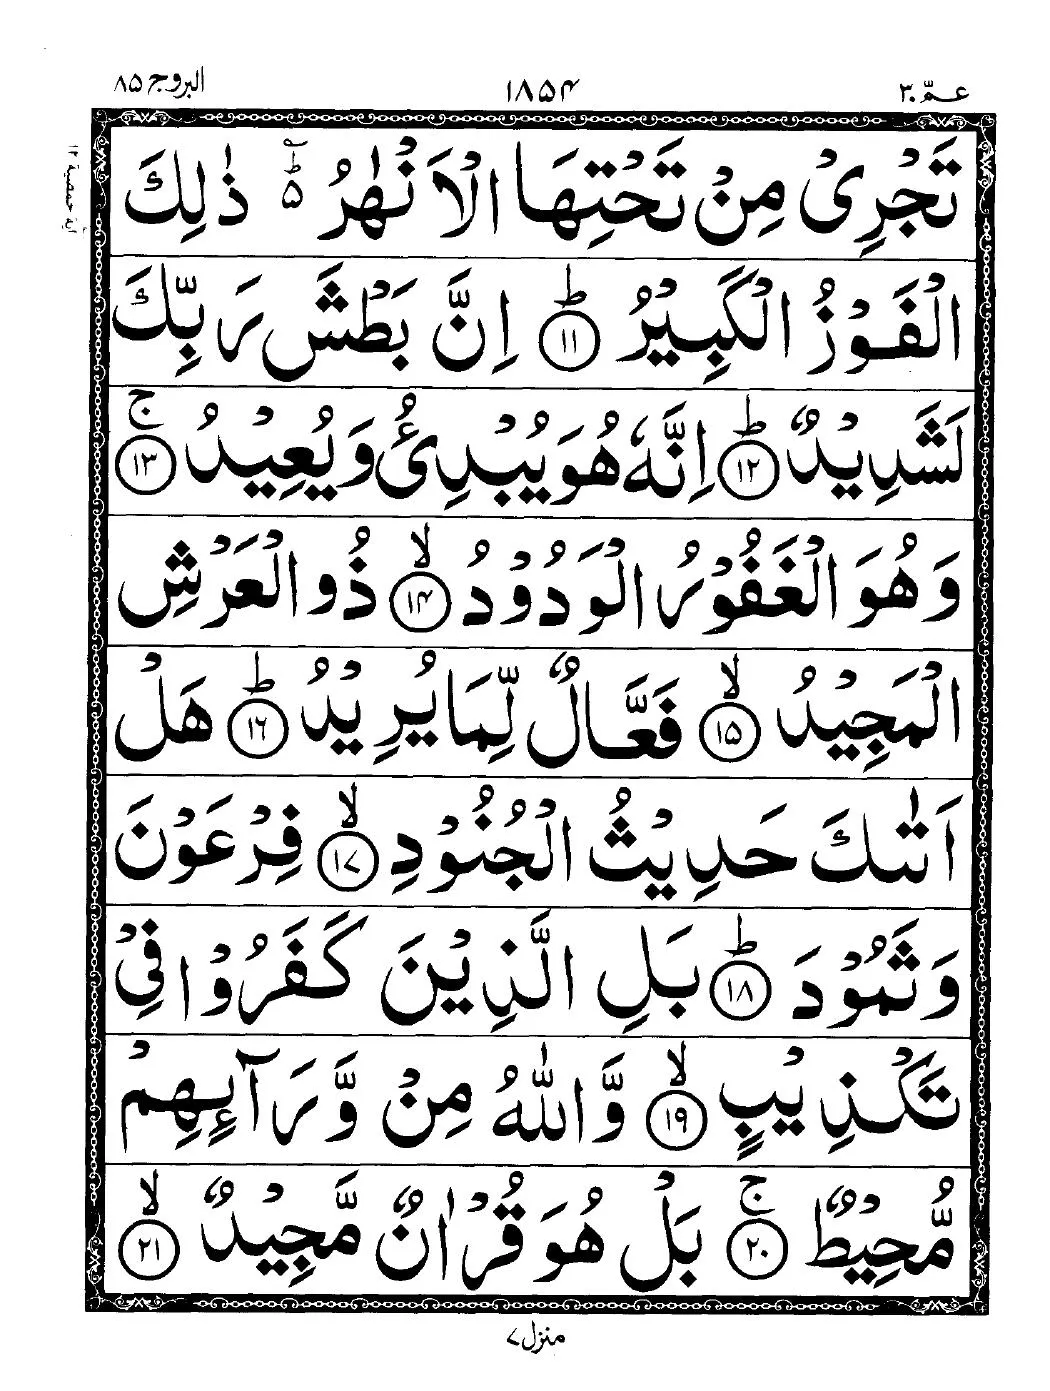 عمّ ۳۰ ۱۸۵۴ البروج ۸۵
تَجْرِیْ مِنْ تَحْتِهَا الْاَنْهٰرُ ؕ۵ ذٰلِكَ
الْفَوْزُ الْكَبِیْرُ ؕ﴿۱۱﴾ اِنَّ بَطْشَ رَبِّكَ
لَشَدِیْدٌ ؕ﴿۱۲﴾ اِنَّهٗ هُوَ یُبْدِئُ وَیُعِیْدُ ۚ﴿۱۳﴾
وَهُوَ الْغَفُوْرُ الْوَدُوْدُ ۙ﴿۱۴﴾ ذُو الْعَرْشِ
الْمَجِیْدُ ۙ﴿۱۵﴾ فَعَّالٌ لِّمَا یُرِیْدُ ؕ﴿۱۶﴾ هَلْ
اَتٰىكَ حَدِیْثُ الْجُنُوْدِ ۙ﴿۱۷﴾ فِرْعَوْنَ
وَثَمُوْدَ ؕ﴿۱۸﴾ بَلِ الَّذِیْنَ كَفَرُوْا فِیْ
تَكْذِیْبٍ ۙ﴿۱۹﴾ وَّاللّٰهُ مِنْ وَّرَآئِهِمْ
مُّحِیْطٌ ۚ﴿۲۰﴾ بَلْ هُوَ قُرْاٰنٌ مَّجِیْدٌ ۙ﴿۲۱﴾
منزل ۷